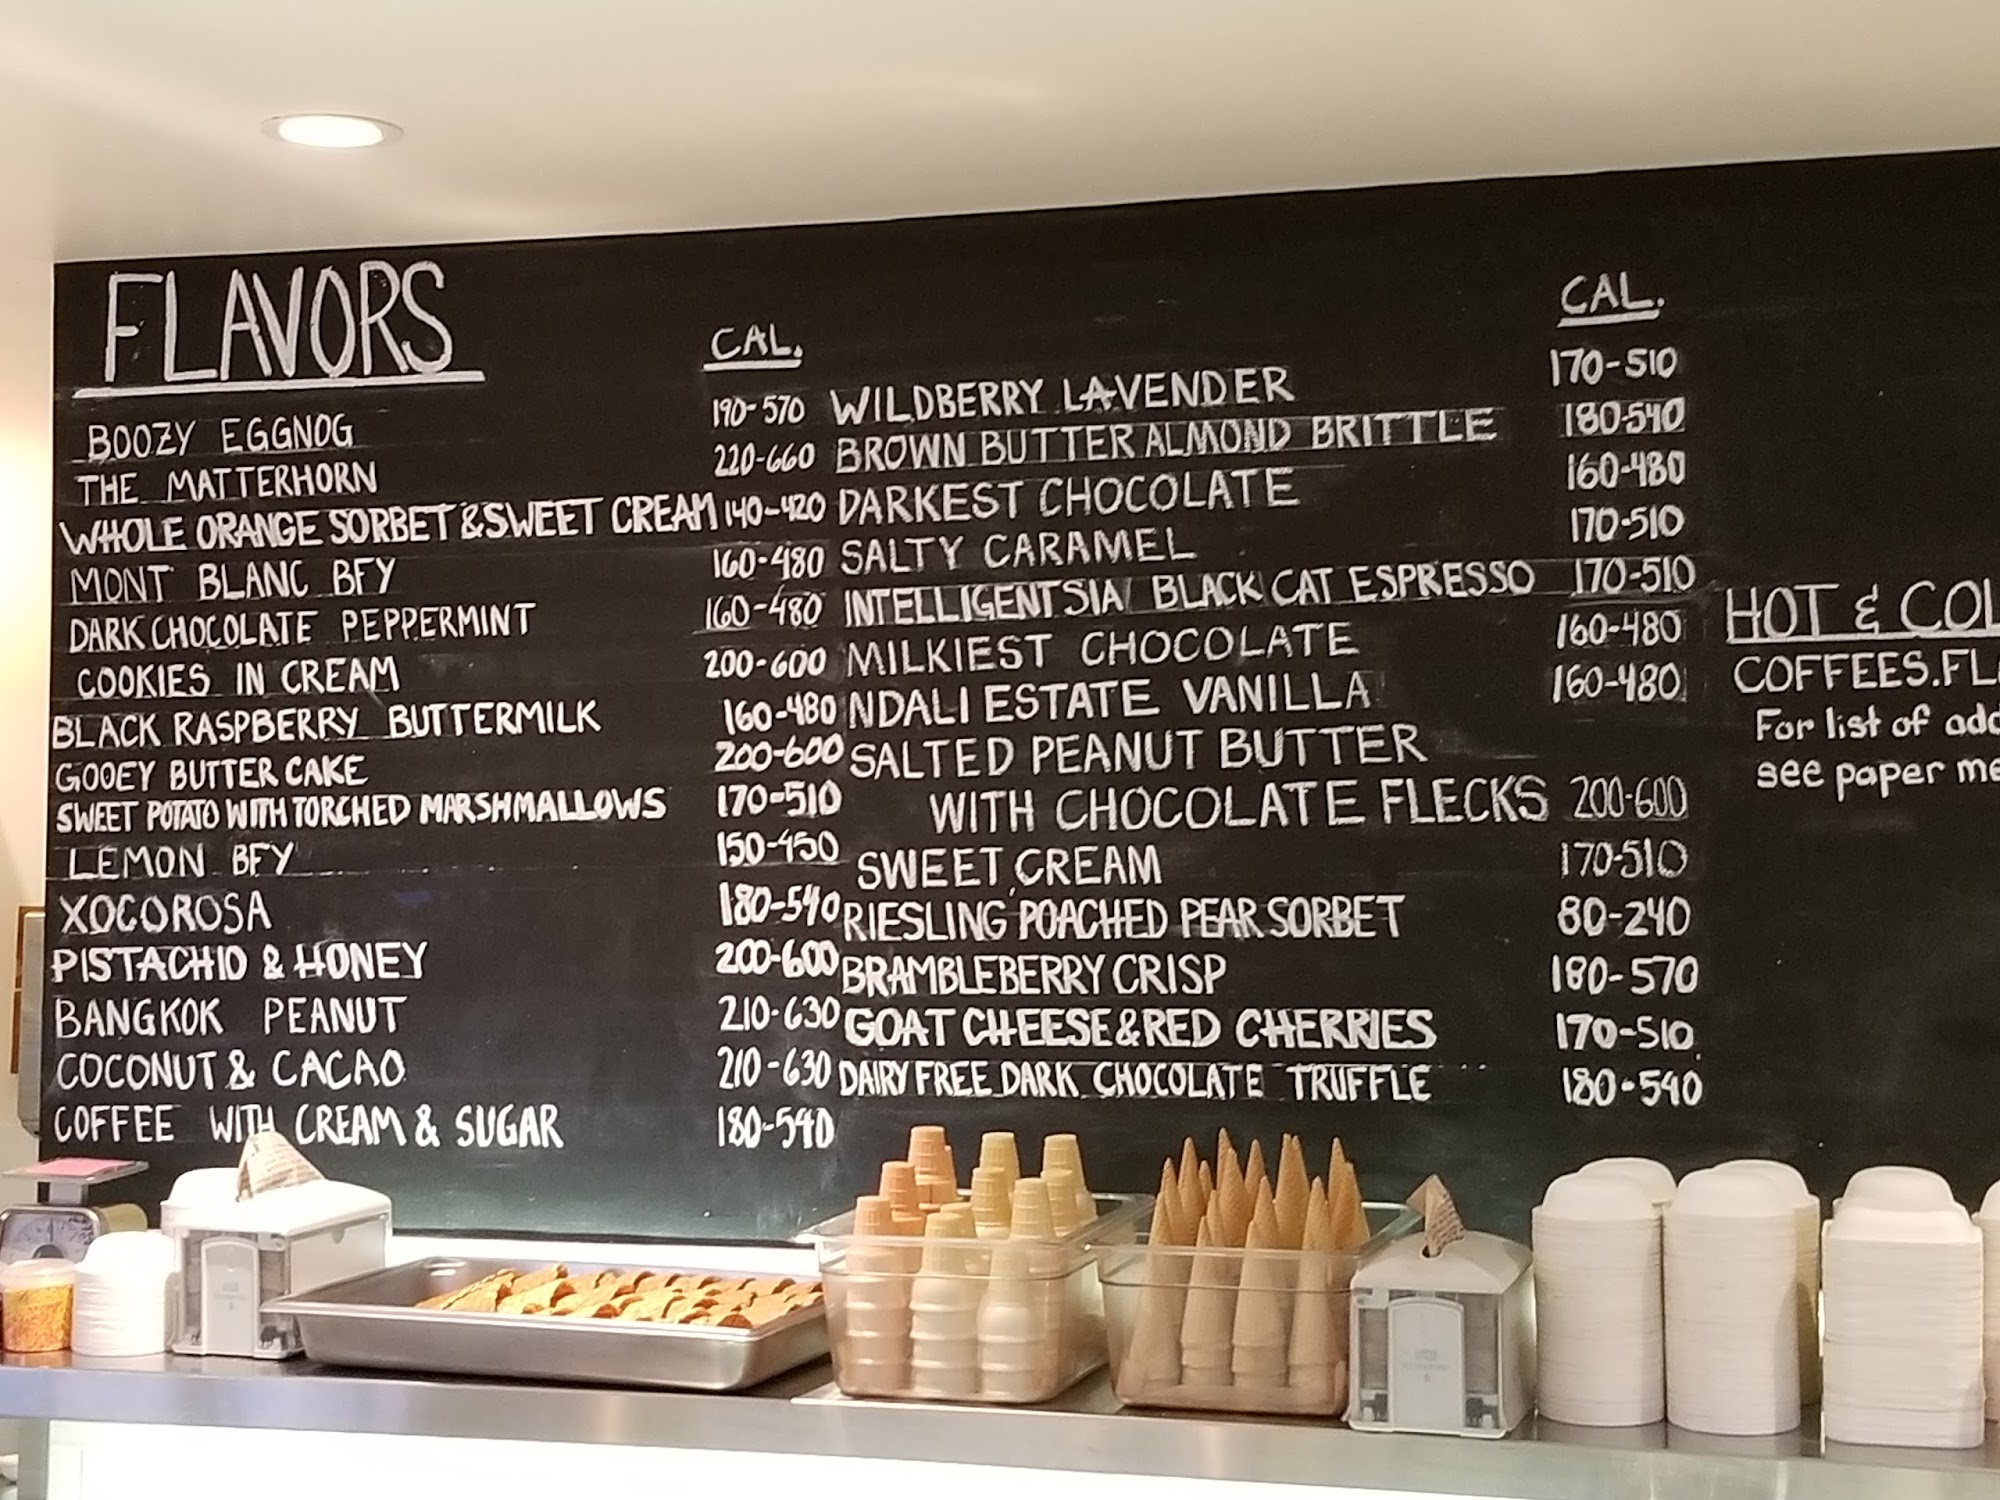 FLAVORS
CAL.
BOOZY EGGNOG 190-570
THE MATTERHORN 220-660
WHOLE ORANGE SORBET & SWEET CREAM 140-420
MONT BLANC BFY 160-480
DARK CHOCOLATE PEPPERMINT 160-480
COOKIES IN CREAM 200-600
BLACK RASPBERRY BUTTERMILK 160-480
GOOEY BUTTER CAKE 200-600
SWEET POTATO WITH TORCHED MARSHMALLOWS 170-510
LEMON BFY 150-450
XOCOROSA 180-540
PISTACHIO & HONEY 200-600
BANGKOK PEANUT 210-630
COCONUT & CACAO 210-630
COFFEE WITH CREAM & SUGAR 180-540
CAL.
WILDBERRY LAVENDER 170-510
BROWN BUTTER ALMOND BRITTLE 180-540
DARKEST CHOCOLATE 160-480
SALTY CARAMEL 170-510
INTELLIGENTSIA BLACK CAT ESPRESSO 170-510
MILKIEST CHOCOLATE 160-480
NDALI ESTATE VANILLA 160-480
SALTED PEANUT BUTTER
WITH CHOCOLATE FLECKS 200-600
SWEET CREAM 170-510
RIESLING POACHED PEAR SORBET 80-240
BRAMBLEBERRY CRISP 180-570
GOAT CHEESE & RED CHERRIES 170-510
DAIRY FREE DARK CHOCOLATE TRUFFLE 180-540
HOT & COL
COFFEES.FL
For list of add
see paper me